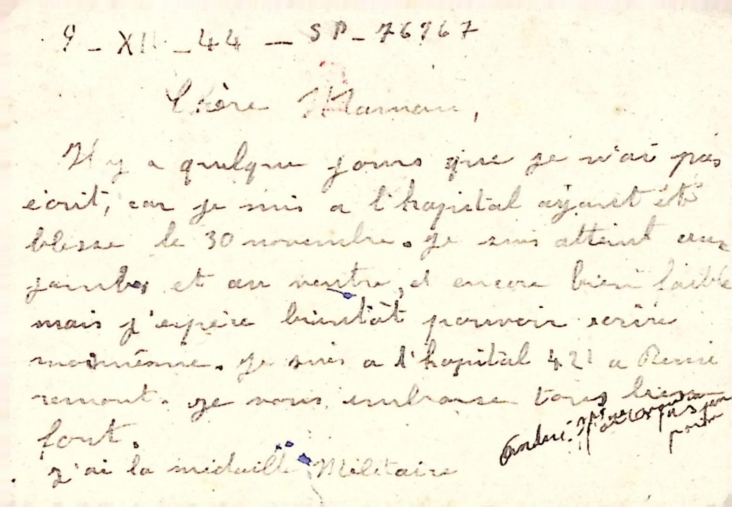 9 - XII - 44 - SP - 76767
Chère Maman,
Il y a quelque jours que je n'ai pas
écrit, car je suis a l'hopital ayant été
blesse le 30 novembre. Je suis atteint aux
jambes et au ventre, et encore bien faible
mais j'espère bientôt pouvoir ecrire
moi-même. Je suis a l'hopital 421 a Remi
remont. Je vous embrasse tous bien
fort.
André.
J'ai la médaille Militaire